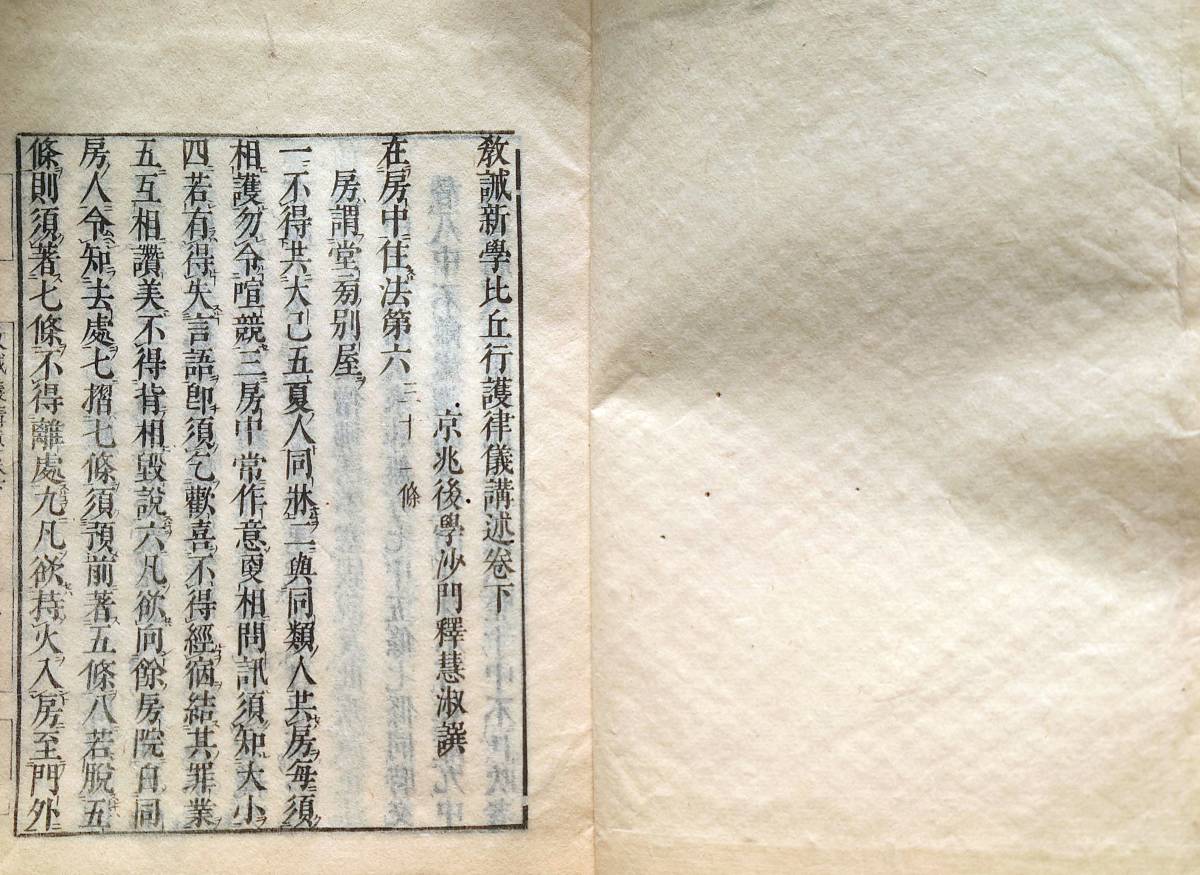 教誡新學比丘行護律儀講述卷下
京兆後學沙門釋慧淑譔
在房中住法第六三十一條
房謂堂舂別屋
一不得共大己五夏人同牀二與同類人共房每須
相護勿令喧競三房中常作意更相問訊須知大小
四若有得失言語卽須乞歡喜不得經宿結其罪業
五互相讚美不得背相毀說六凡欲向餘房院白同
房人令知去處七摺七條須預前著五條八若脫五
條則須著七條不得離處九凡欲持火入房至門外